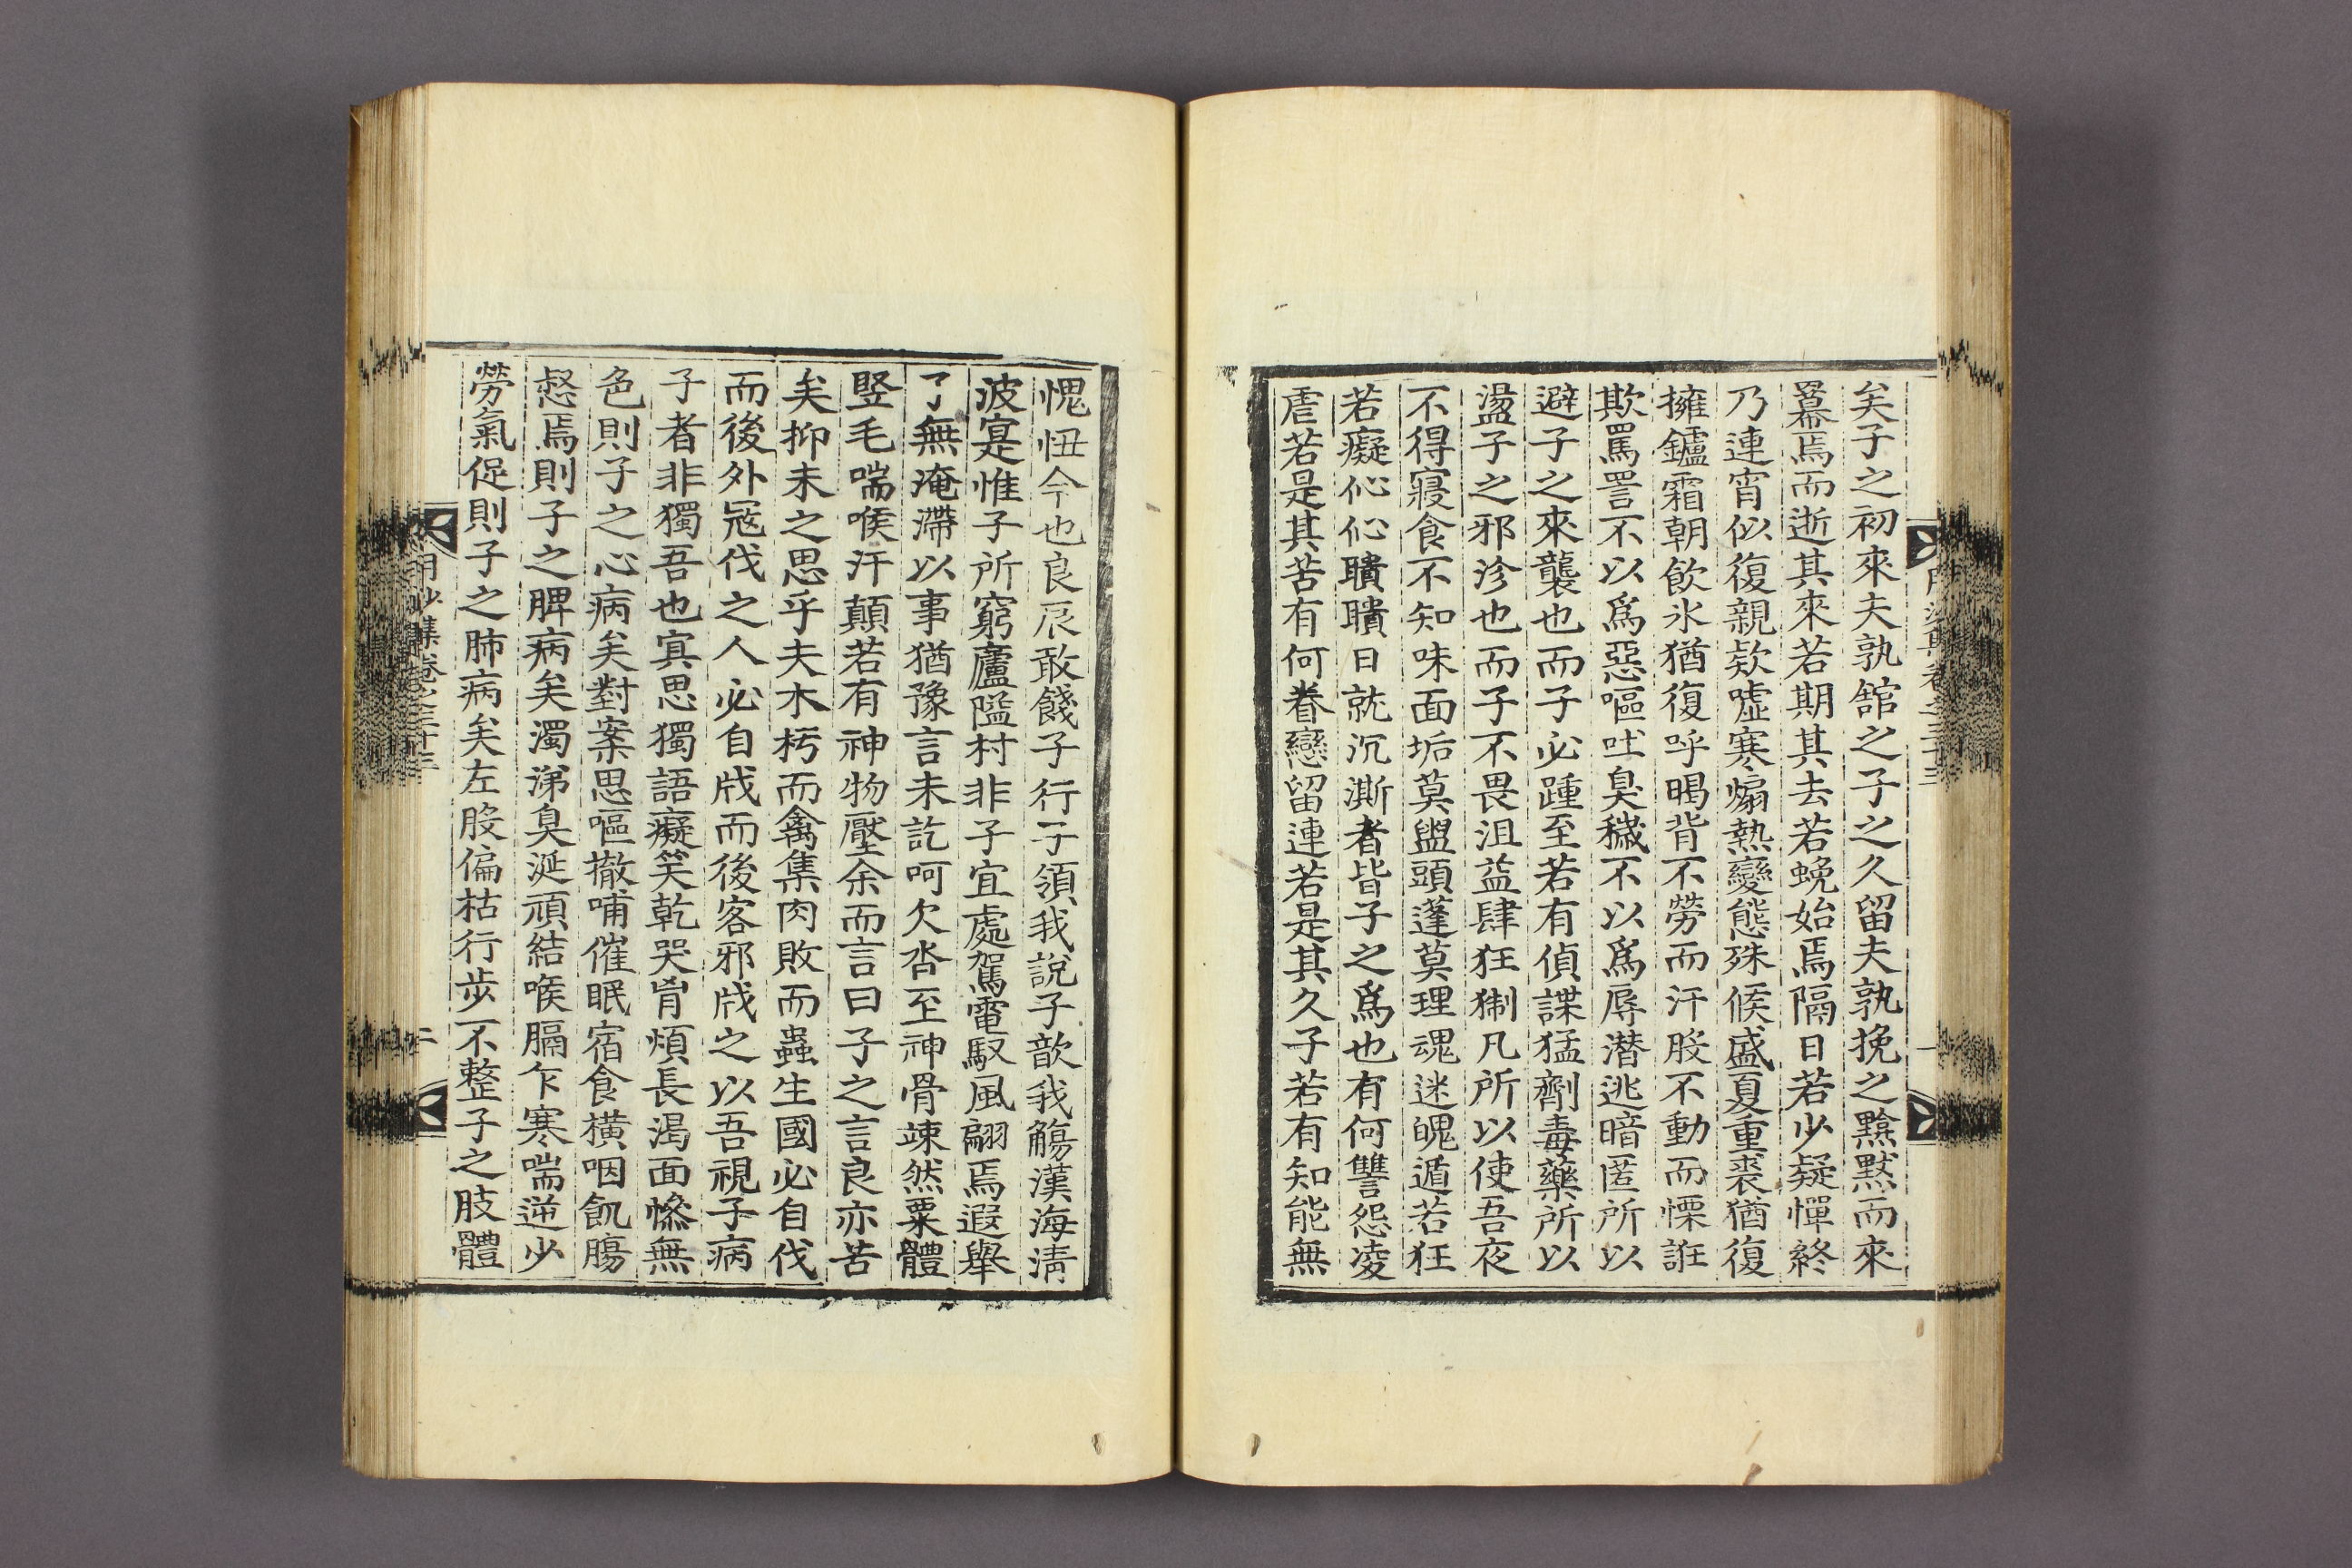 矣子之初來夫孰舘之子之久留夫孰挽之黯黙而來
羃焉而逝其來若期其去若蛻始焉隔日若少疑憚終
乃連宵似復親欵噓寒煽熱變態殊候盛夏重裘猶復
擁鑪霜朝飮氷猶復呼暍背不勞而汗股不動而慄誑
欺罵詈不以爲惡嘔吐臭穢不以爲辱潜逃暗匿所以
避子之來襲也而子必踵至若有偵諜猛劑毒藥所以
盪子之邪沴也而子不畏沮益肆狂猘凡所以使吾夜
不得寢食不知味面垢莫盥頭蓬莫理魂迷魄遁若狂
若癡伈伈聵聵日就沉澌者皆子之爲也有何讐怨凌
虐若是其苦有何眷戀留連若是其久子若有知能無
愧忸今也良辰敢餞子行子領我說子歆我觴漢海淸
波寔惟子所窮廬隘村非子宜處駕電馭風翩焉遐擧
了無淹滯以事猶豫言未訖呵欠沓至神骨竦然粟體
竪毛喘喉汗顛若有神物壓余而言曰子之言良亦苦
矣抑未之思乎夫木朽而禽集肉敗而蟲生國必自伐
而後外冦伐之人必自戕而後客邪戕之以吾視子病
子者非獨吾也寘思獨語癡笑乾哭胷煩長渴面慘無
色則子之心病矣對案思嘔撤哺催眠宿食橫咽飢膓
惄焉則子之脾病矣濁涕臭涎頑結喉膈乍寒喘逆少
勞氣促則子之肺病矣左股偏枯行步不整子之肢體